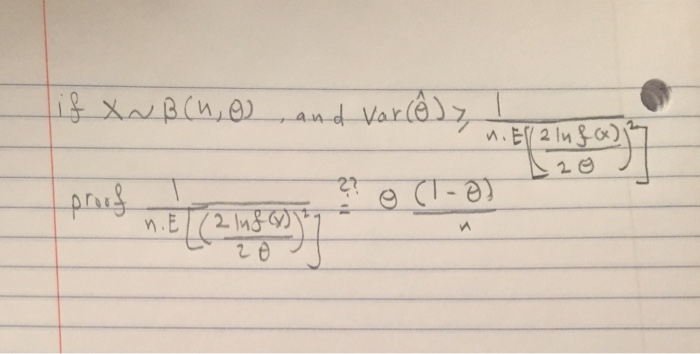 if X ~ β(n, θ) , and Var(θ̂) ≥ 1 / n. E[(2 ln f(x) / 2 θ)²]
proof 1 / n. E [(2 ln f(x) / 2 θ)²] ?? = θ (1 - θ) / n